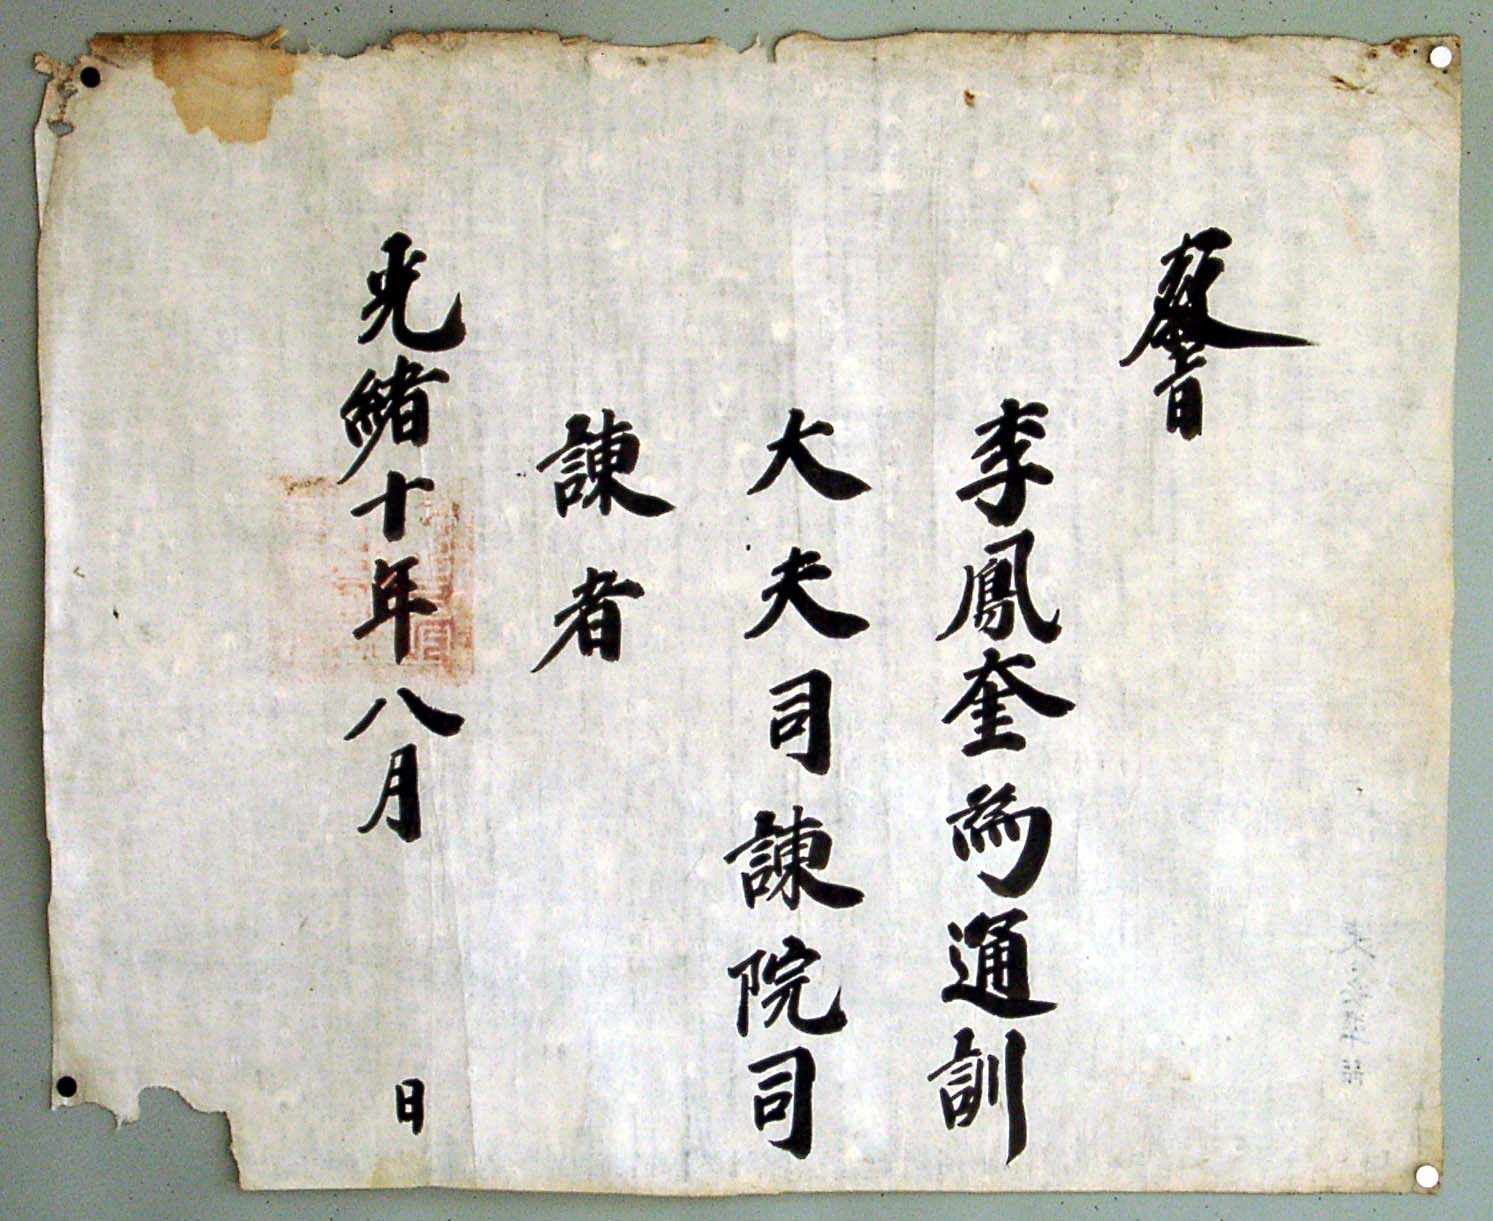 教旨
李鳳奎爲通訓
大夫司諫院司
諫者
光緖十年八月 日